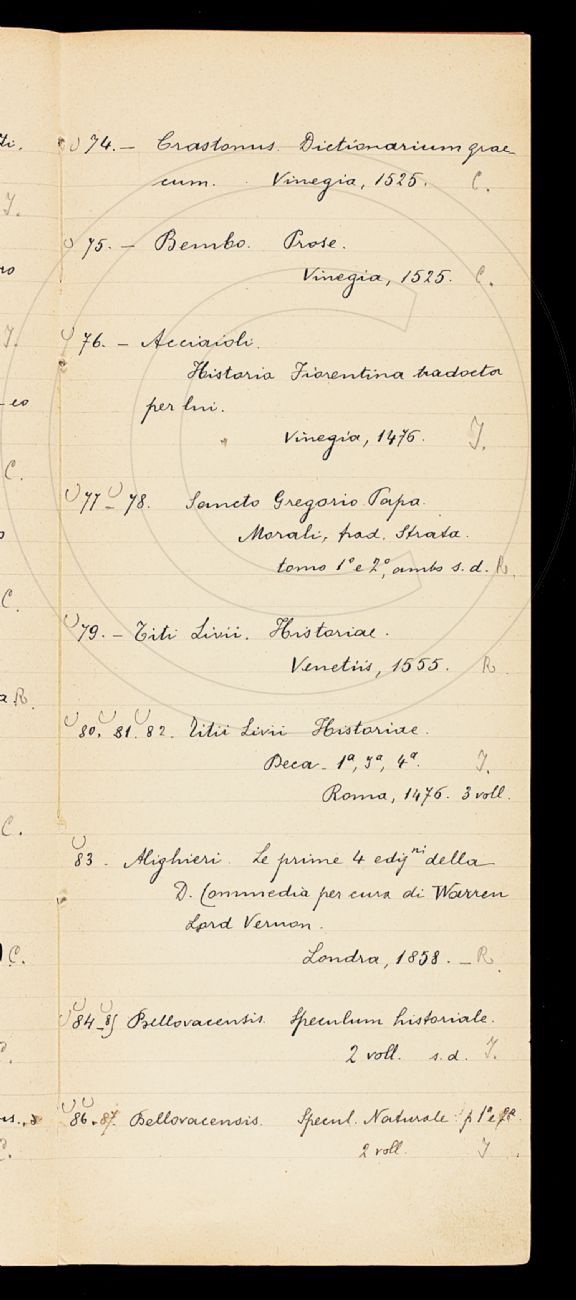 74. — Crastonus. Dictionarium grae
cum. Vinegia, 1525. C.
75. — Bembo. Prose.
Vinegia, 1525. C.
76. — Acciaioli.
Historia Fiorentina tradocta
per lui.
Vinegia, 1476. J.
77 - 78. Sancto Gregorio Papa.
Morali, trad. Strata.
tomo 1º e 2º, ambo s. d. R.
79. — Titi Livii. Historiae.
Venetiis, 1555. R
80, 81, 82 - Titii Livii Historiae.
Deca - 1ª, 3ª, 4ª. J.
Roma, 1476. 3 voll.
83. Alighieri. Le prime 4 edij ni della
D. Commedia per cura di Warren
Lord Vernon.
Londra, 1858. — R.
84 - 85 Bellovacensis. Speculum historiale.
2 voll. s. d. J.
86 - 87. Bellovacensis. Specul. Naturale: p 1ª e 2ª
2 voll. J